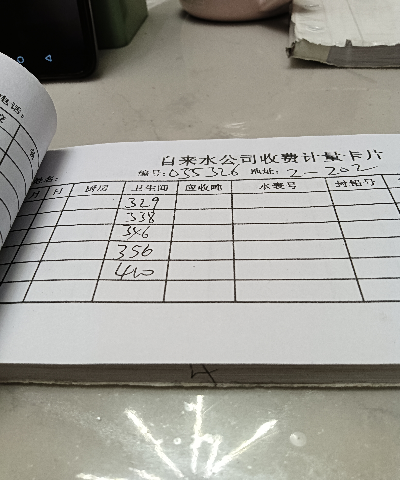 自来水公司收费计量卡片
编号:035326 地址:2-202
姓名:
月 日 厨房 卫生间 应收吨 水表号 封铅号
329
338
346
356
410